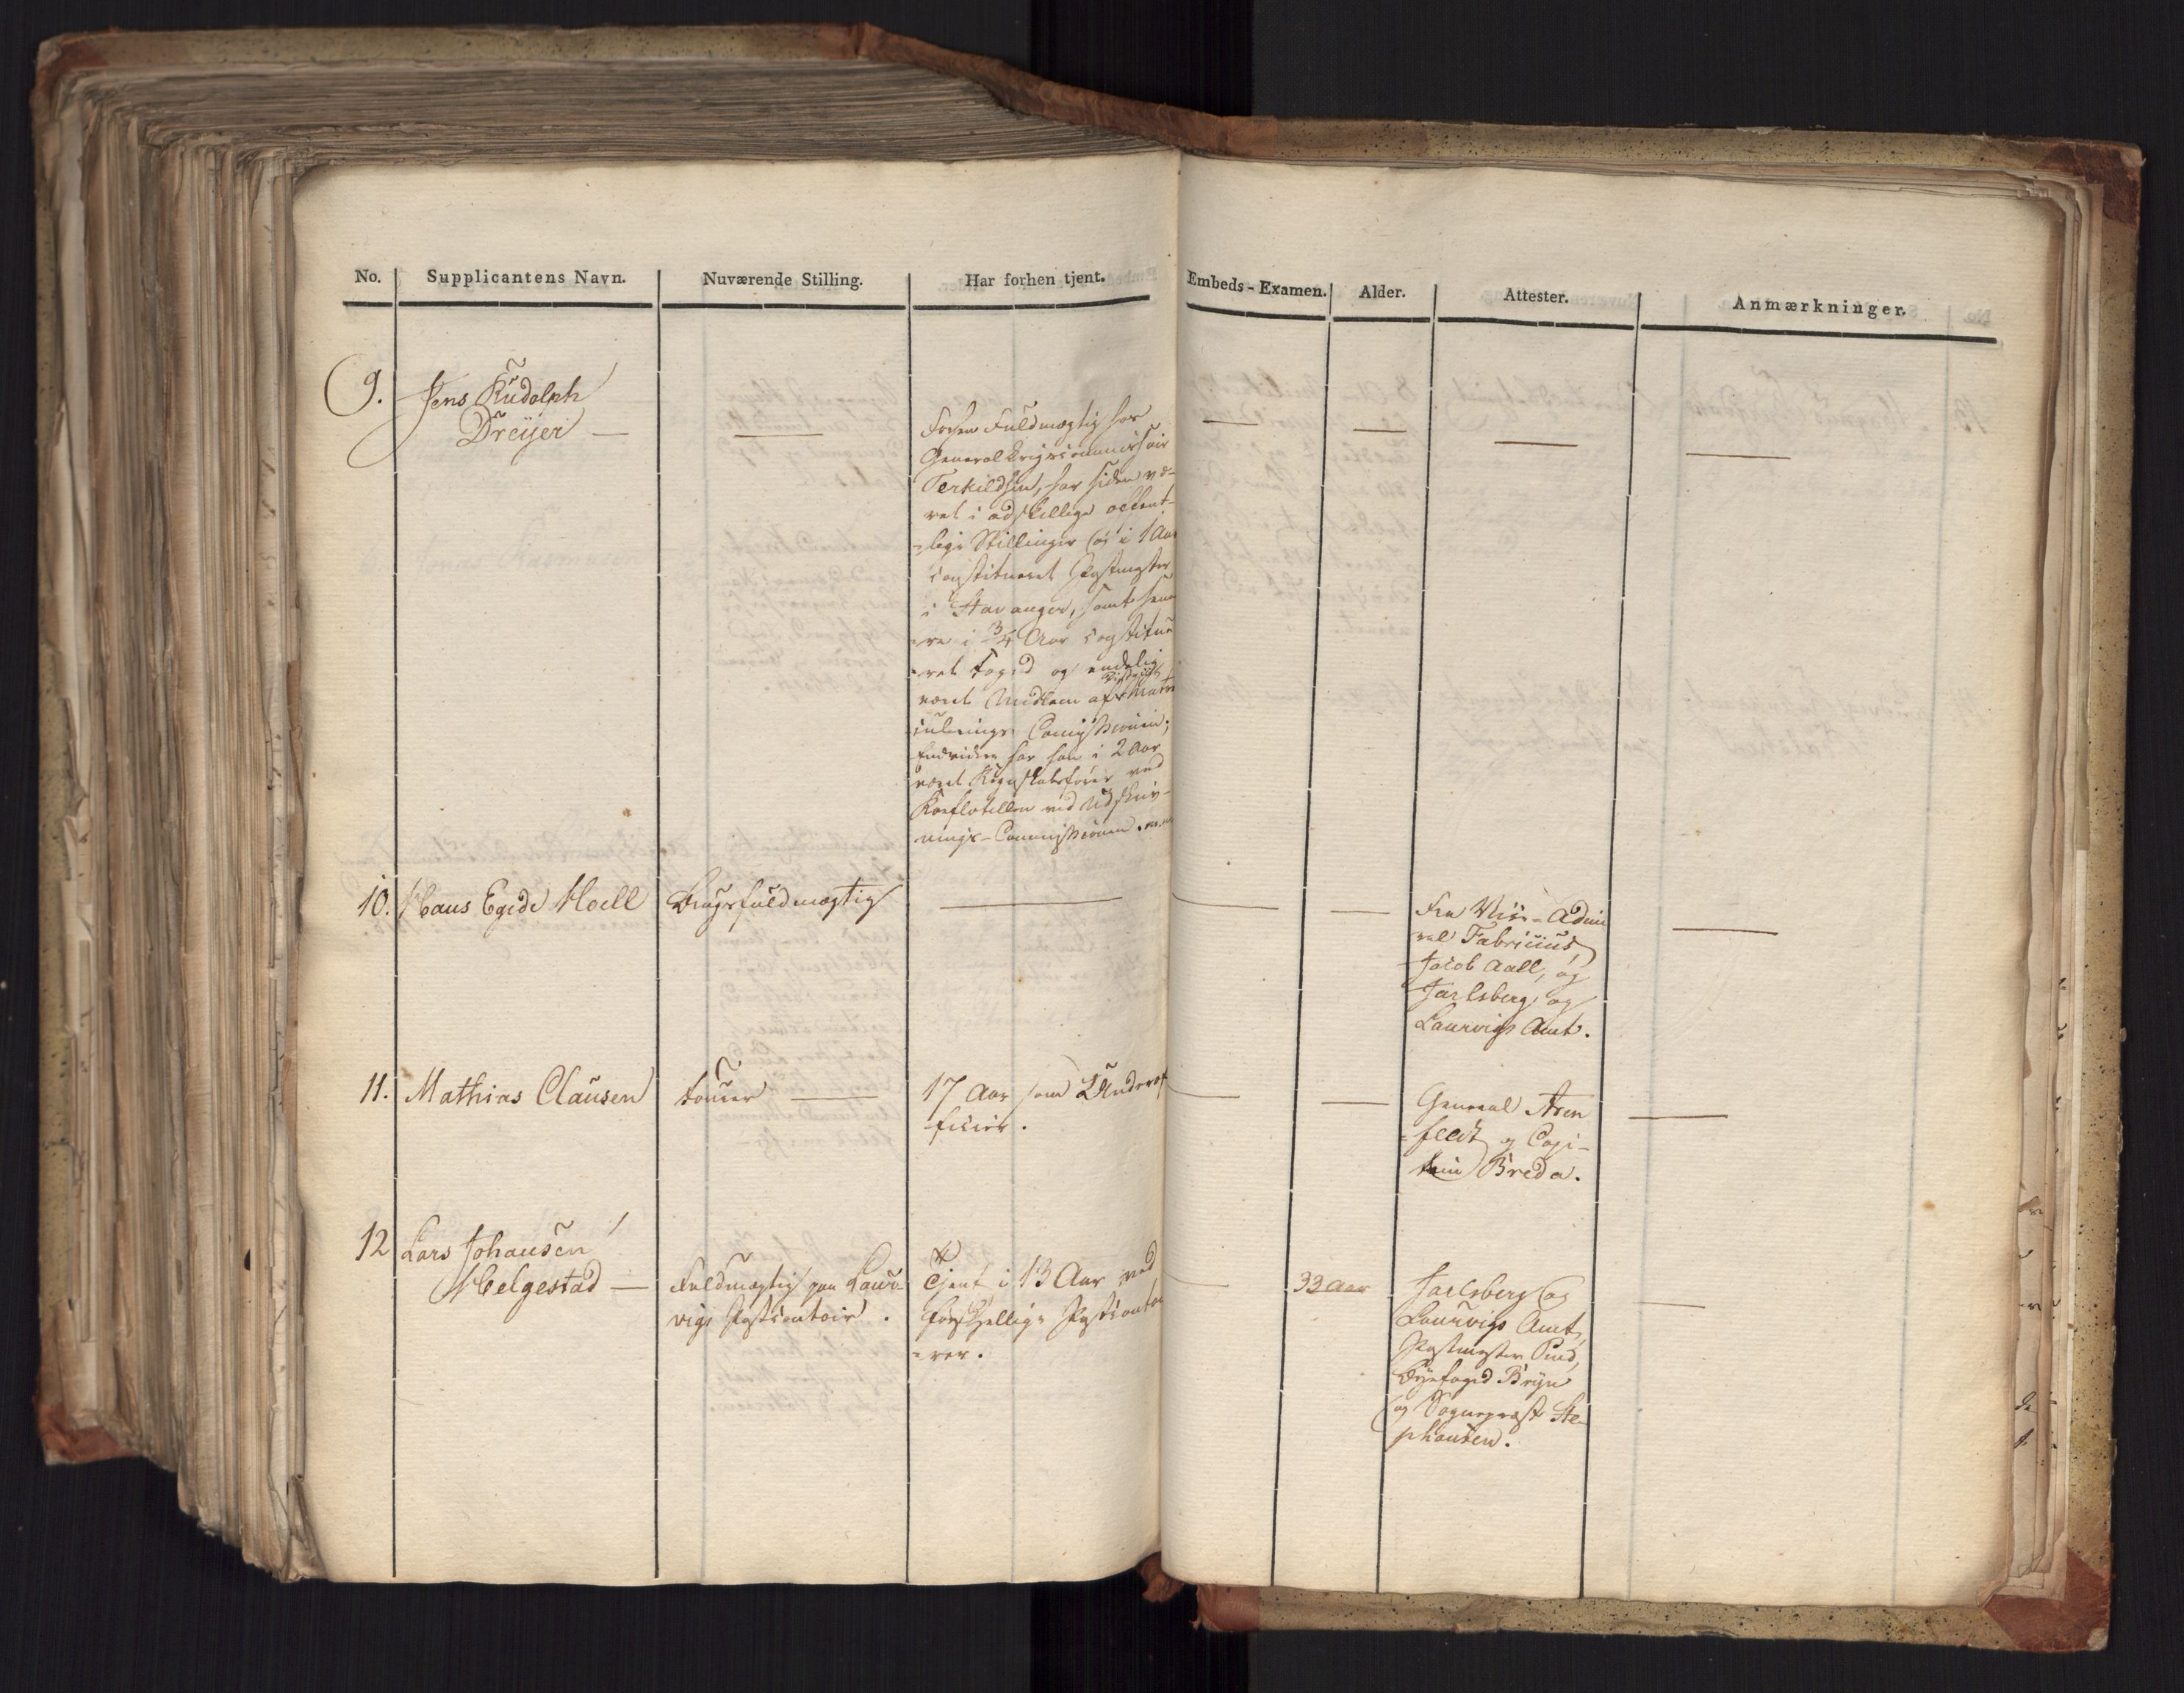 No. Supplicantens Navn. Nuværende Stilling. Har forhen tjent. Embeds-Examen. Alder. Attester. Anmærkninger.
9. Jens Rudolph
Dreyer —
—
Forhen Fuldmægtig hos
Generalkrigscommissair
Terkildsen, har siden væ-
ret i adskillige offent-
-lige Stillinger og i 1 Aar
constitueret Postmester
i Stavanger, samt sene
-re i 3/4 Aar constitue
-ret Foged og endelig
været Medlem af Districts Matri
culerings Comissionen;
Endvidere har han i 2 Aar
været Regnskabsfører ved
Roeflotillen ved Udskriv-
nings-Commissionen m.m.
— — — —
10. Hans Egede Moell
Brugsfuldmægtig
—
— —
Fra Vice-Admi
ral Fabricius
Jacob Aall, og
Jarlsberg og
Laurvigs Amt.
—
11. Mathias Clausen
Fourer —
17 Aar som Underof
-ficier.
— —
General Aren
-feldt og Capi-
tain Breda.
—
12 Lars Johansen
Helgestad —
Fuldmægtig paa Laur-
vigs Postcontoir.
Tjent i 13 Aar ved
forskjellige Postconto
-rer.
—
33 Aar
Jarlsberg og
Laurvigs Amt,
Postmester
Byefoged Bryn
og Sognepræst Ste-
phansen.
—